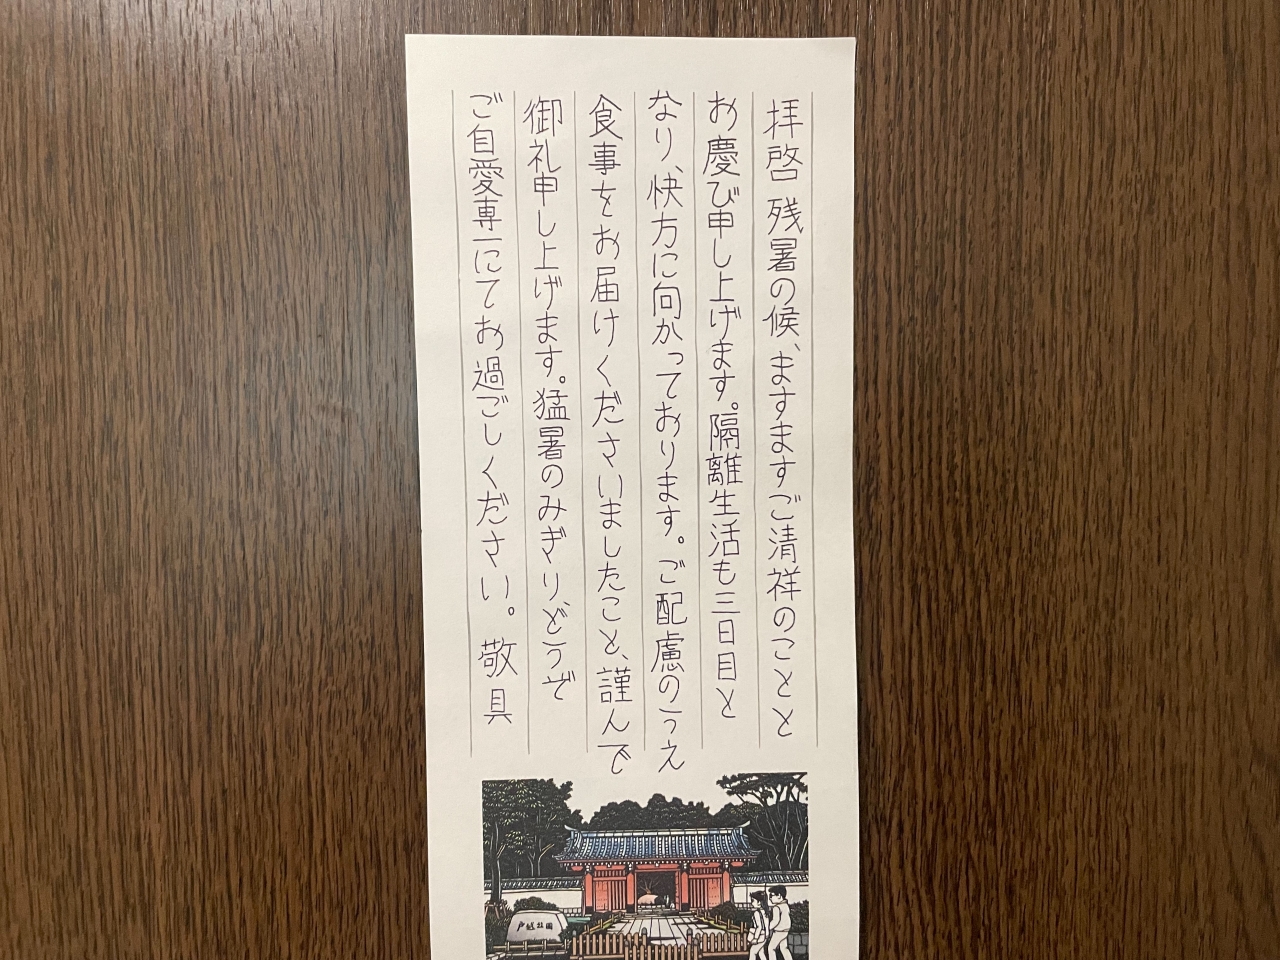 拝啓 残暑の候、ますますご清祥のことと
お慶び申し上げます。隔離生活も三日目と
なり、快方に向かっております。ご配慮のうえ
食事をお届けくださいましたこと、謹んで
御礼申し上げます。猛暑のみぎり、どうぞ
ご自愛専一にてお過ごしください。 敬具
戸越公園